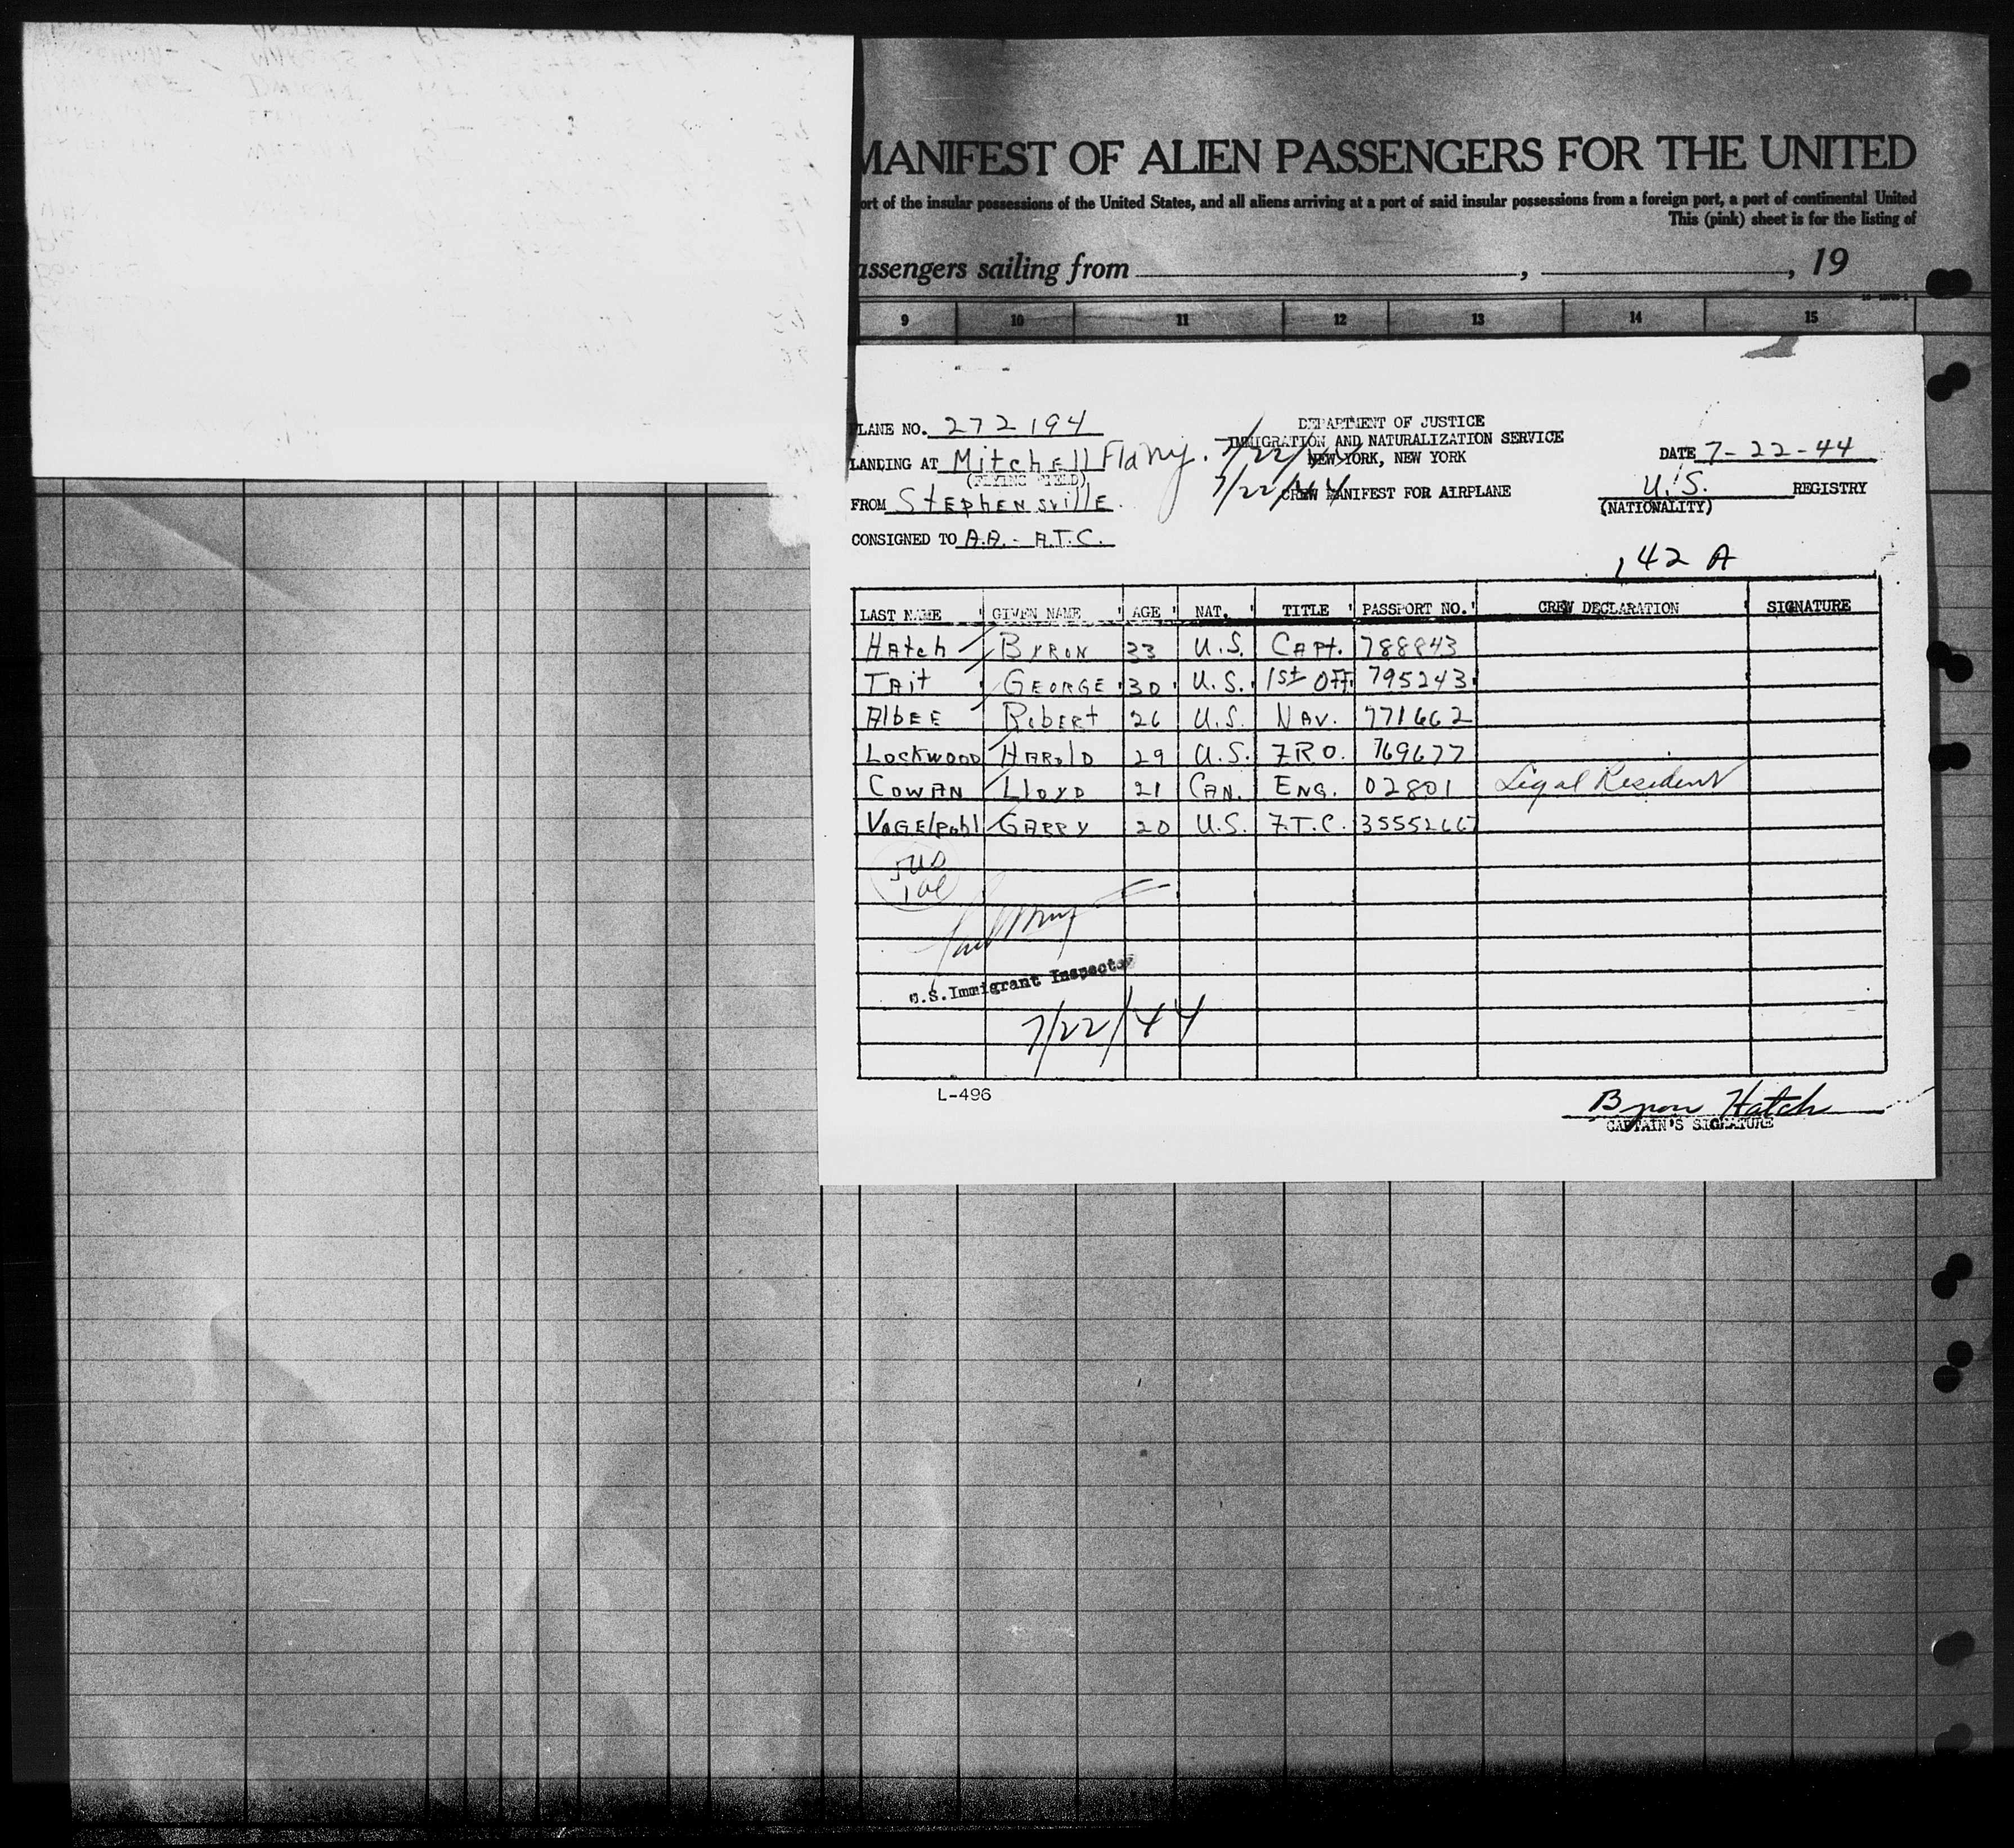 MANIFEST OF ALIEN PASSENGERS FOR THE UNITED
ort of the insular possessions of the United States, and all aliens arriving at a port of said insular possessions from a foreign port, a port of continental United
This (pink) sheet is for the listing of
assengers sailing from , , 19
9 10 11 12 13 14 15
PLANE NO. 272194
LANDING AT Mitchell F1d NY. 7/22/44
(FLYING FIELD)
FROM Stephensville 7/22/44
CONSIGNED TO A.A. - A.T.C.
DEPARTMENT OF JUSTICE
IMMIGRATION AND NATURALIZATION SERVICE
NEW YORK, NEW YORK
CREW MANIFEST FOR AIRPLANE
DATE 7-22-44
U.S. REGISTRY
(NATIONALITY)
142 A
LAST NAME GIVEN NAME AGE NAT. TITLE PASSPORT NO. CREW DECLARATION SIGNATURE
Hatch Byron 33 U.S. Capt. 788843
Tait George 30 U.S. 1st Off. 795243
Albee Robert 26 U.S. Nav. 771662
Lockwood Harold 29 U.S. FRO. 769677
Cowan Lloyd 21 Can. Eng. 02801 Legal Resident
Vogelpohl Garry 20 U.S. F.T.C. 35552667
5 US
U.S. Immigrant Inspector
7/22/44
L-496
Byron Hatch
CAPTAIN'S SIGNATURE